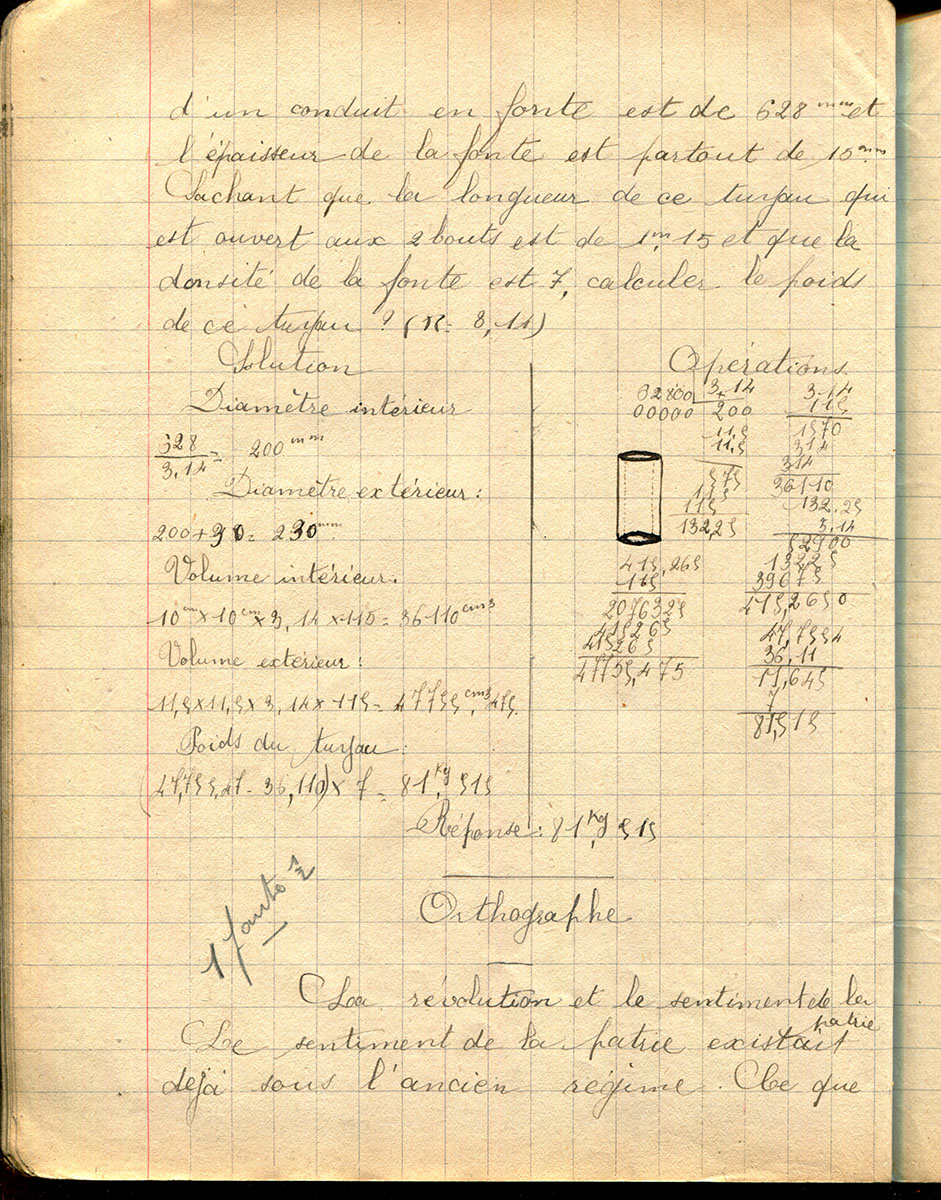 d'un conduit en fonte est de 628 mm et
l'épaisseur de la fonte est partout de 15 mm.
Sachant que la longueur de ce tuyau qui
est ouvert aux 2 bouts est de 1m,15 et que la
densité de la fonte est 7, calculer le poids
de ce tuyau ? (π = 3,14)
Solution
Diamètre intérieur
628/3,14 = 200 mm
Diamètre extérieur :
200 + 30 = 230 mm
Volume intérieur.
10 cm × 10 cm × 3,14 × 115 = 36110 cm3
Volume extérieur :
11,5 × 11,5 × 3,14 × 115 = 47755 cm3,475
Poids du tuyau :
36,110) × 7 = 81 Kg,515
Réponse : 81 Kg,515
Opérations
62800 3,14
00000 200
3,14
115
1570
314
314
36110
11,5
11,5
575
115
115
132,25
132,25
3,14
52900
13225
39675
415,2650
415,265
115
2076325
415265
415265
47755,475
36,11
11,645
7
81,515
1 faute ½
Orthographe
La révolution et le sentiment de la
patrie
Le sentiment de la patrie existait
déjà sous l'ancien régime. Ce que